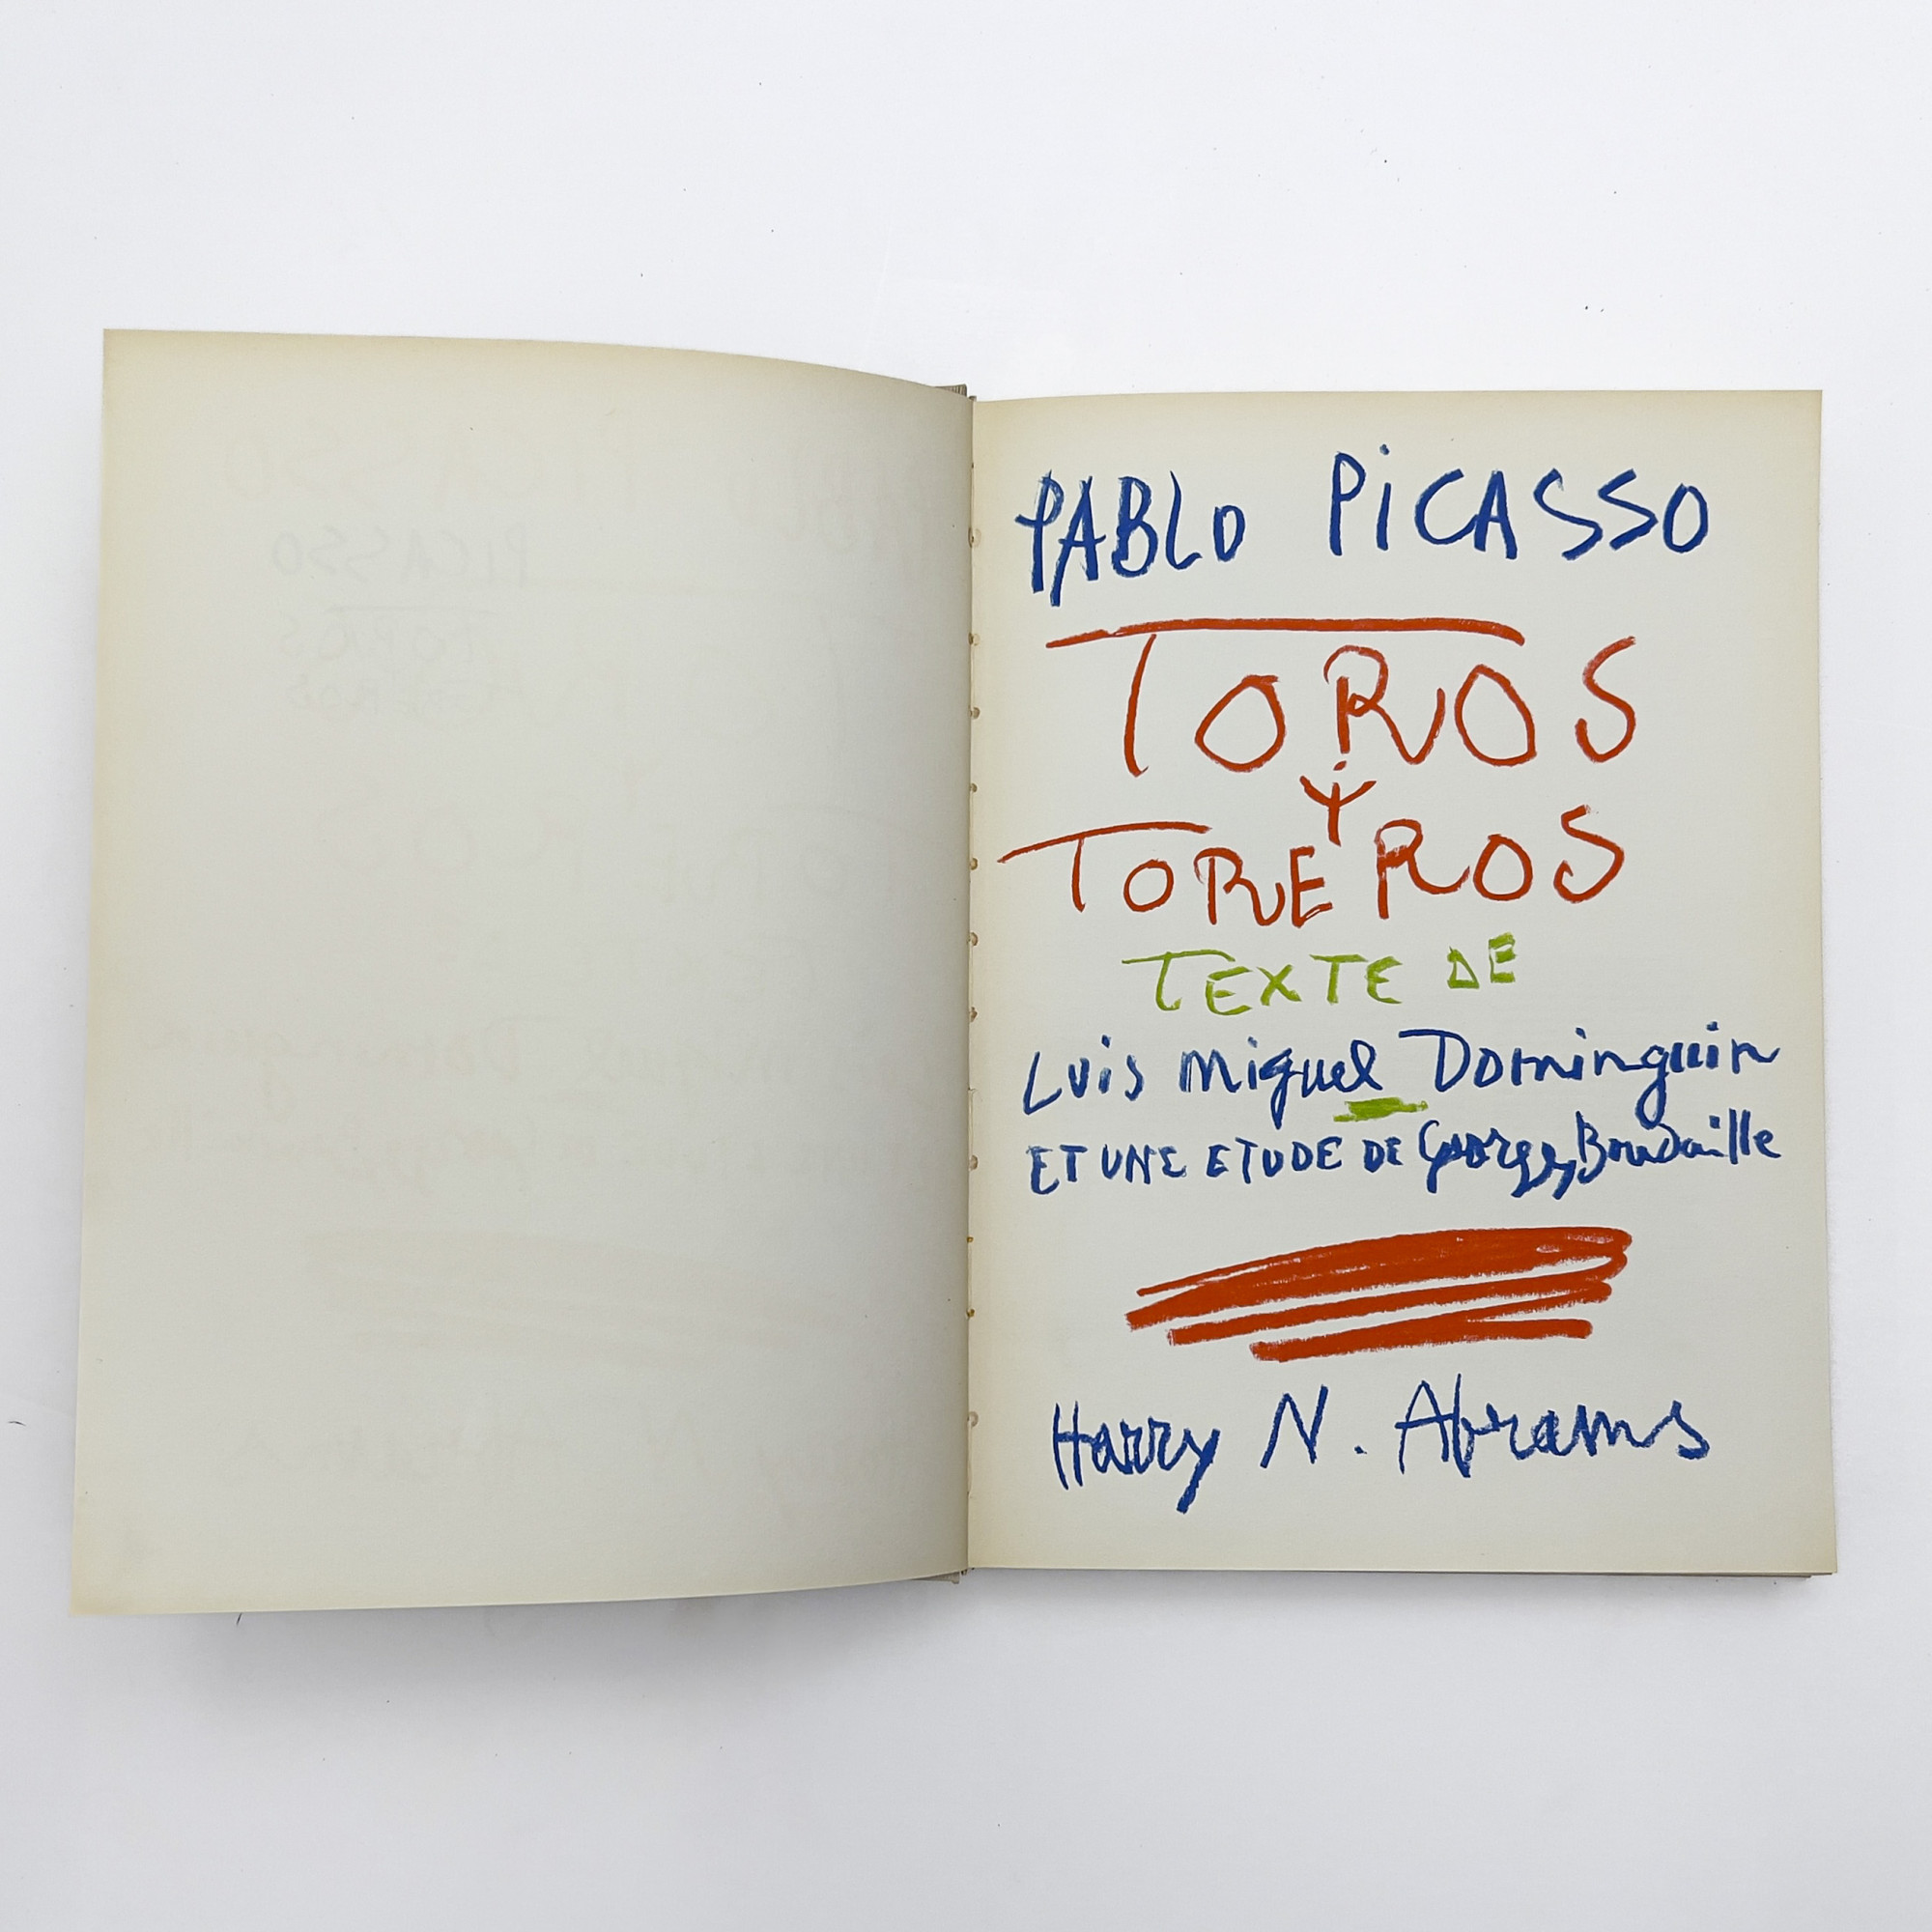 PABLO PiCASSO
TOROS
Y
TOREROS
TEXTE DE
Luis Miguel Dominguin
ET UNE ETUDE DE Georges Boudaille
Harry N. Abrams
PICASSO
TOROS